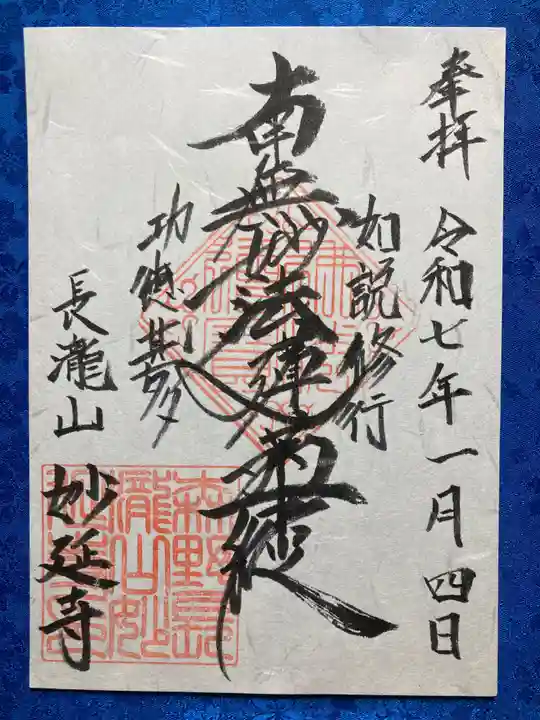 奉拝 令和七年一月四日
如説修行
南無妙法蓮華経
功徳甚多
長瀧山 妙延寺